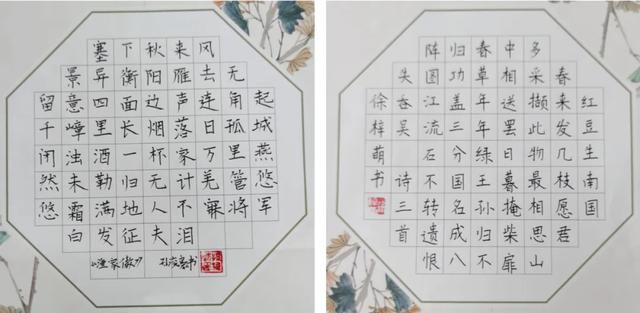 塞下秋来风
景异衡阳雁去无
留意四面边声连角起
千嶂里长烟落日孤城
闭浊酒一杯家万里燕
然未勒归无计羌管悠
悠霜满地人不寐将军
白发征夫泪
《渔家傲》
红豆生南国
春来发几枝愿君
多采撷此物最相思山
中相送罢日暮掩柴扉
春草年年绿王孙归不
归功盖三分国名成八
阵图江流石不转遗恨
失吞吴 诗三首
徐梓萌书